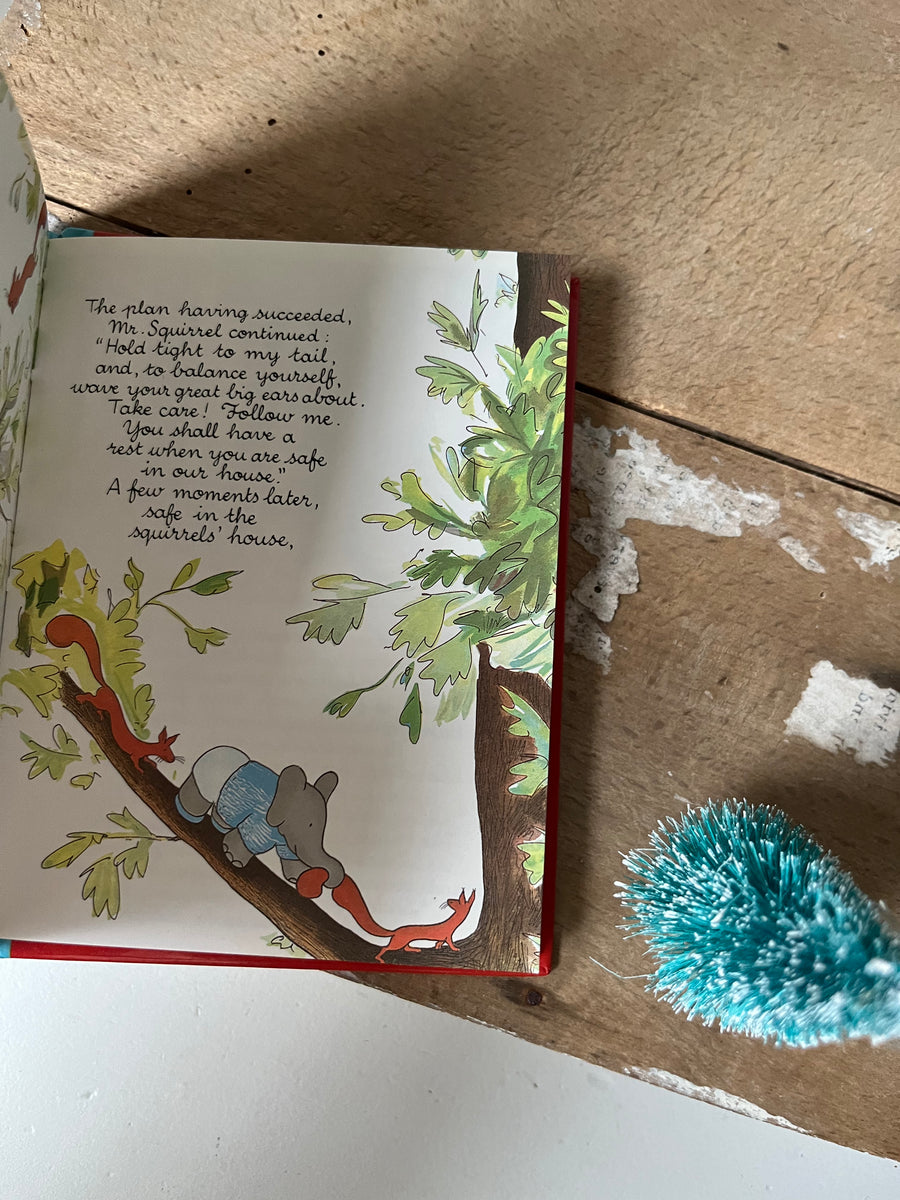 The plan having succeeded,
Mr. Squirrel continued :
"Hold tight to my tail,
and, to balance yourself,
wave your great big ears about.
Take care! Follow me.
You shall have a
rest when you are safe
in our house."
A few moments later,
safe in the
squirrels' house,